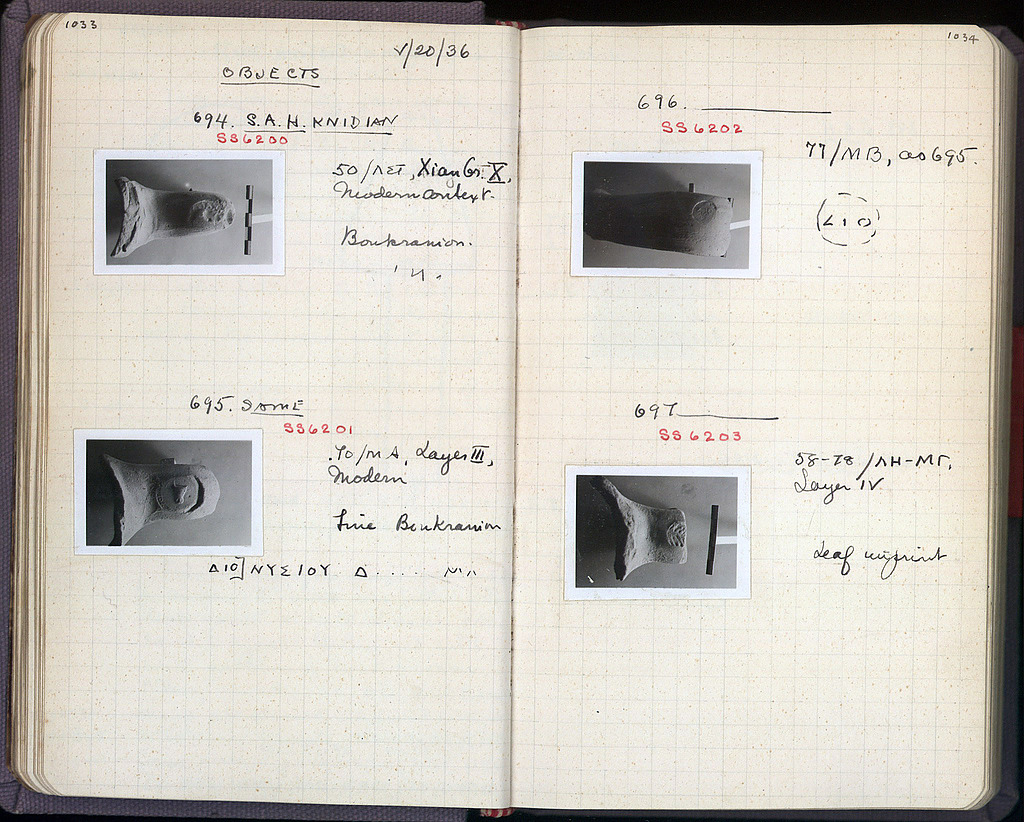 1033
V/20/36
OBJECTS
694. S.A.H. KNIDIAN
SS6200
50/ΛΣΤ, Xian Gr. X,
Modern context.
Boukranion.
695. SAME
SS6201
70/MA, Layer III,
Modern
Fine Boukranion
ΔΙΟ]ΝΥΣΙΟΥ Δ.....
1034
696.
SS6202
77/MB, as 695.
697
SS6203
58-78/ΛΗ-ΜΓ,
Layer IV
Leaf imprint